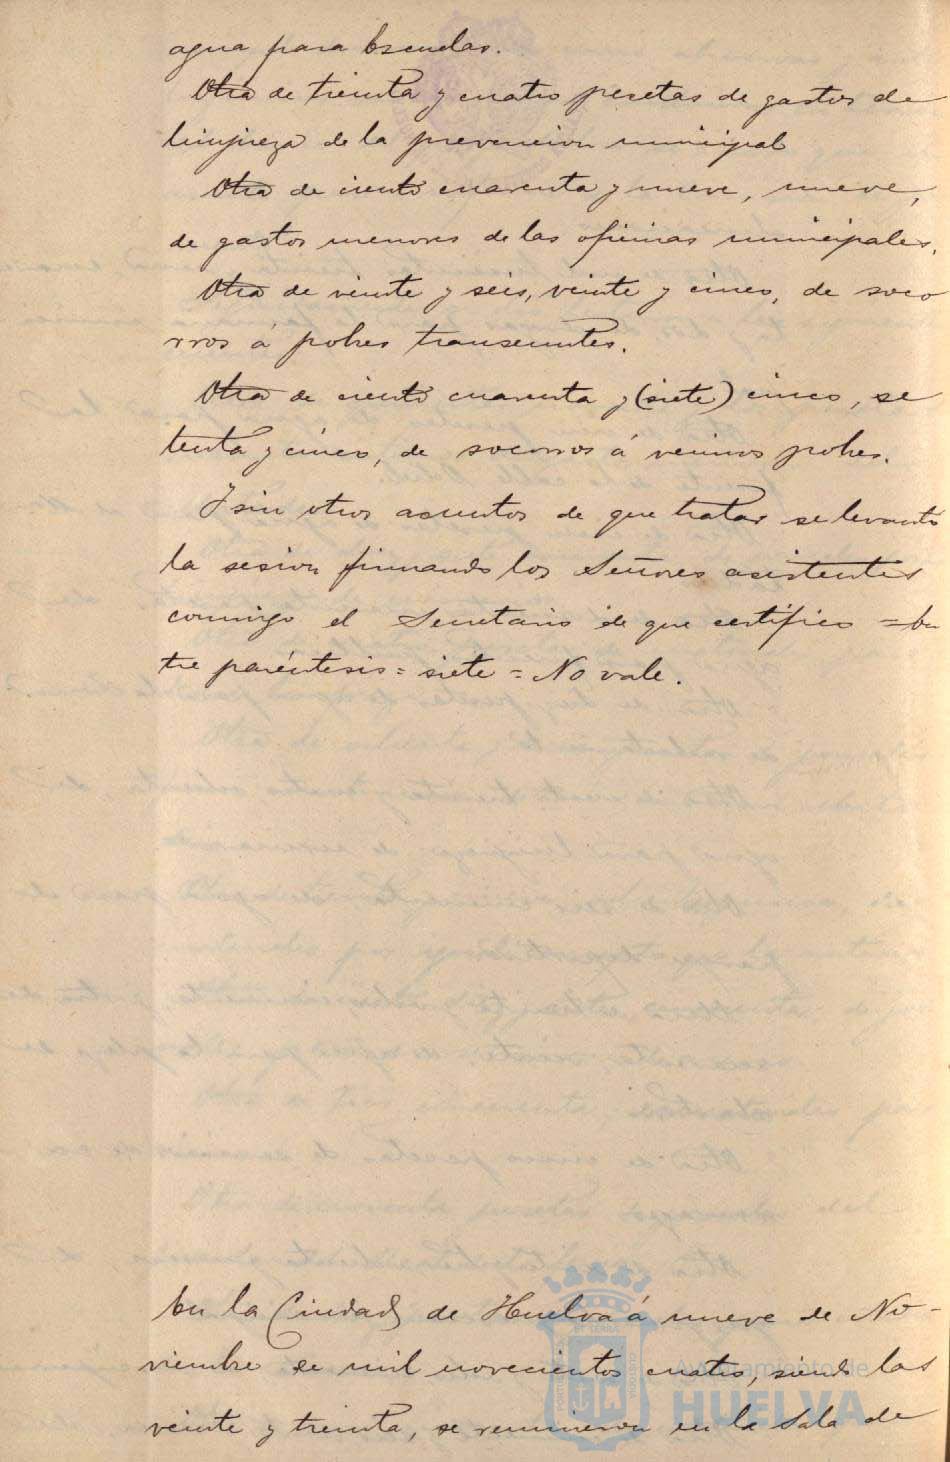 agua para Escuelas.
Otra de treinta y cuatro pesetas de gastos de
limpieza de la prevencion municipal
Otra de ciento cuarenta y nueve, nueve,
de gastos menores de las oficinas municipales.
Otra de veinte y seis, veinte y cinco, de soco
rros á pobres transeuntes.
Otra de ciento cuarenta y (siete) cinco, se
tenta y cinco, de socorros á vecinos pobres.
Y sin otros asuntos de que tratar se levantó
la sesion firmando los Señores asistentes
conmigo el Secretario de que certifico = En
tre paréntesis = siete = No vale.
En la Ciudad de Huelva á nueve de No-
viembre de mil novecientos cuatro, siendo las
veinte y treinta, se reunieron en la Sala de
Ayuntamiento de
HUELVA